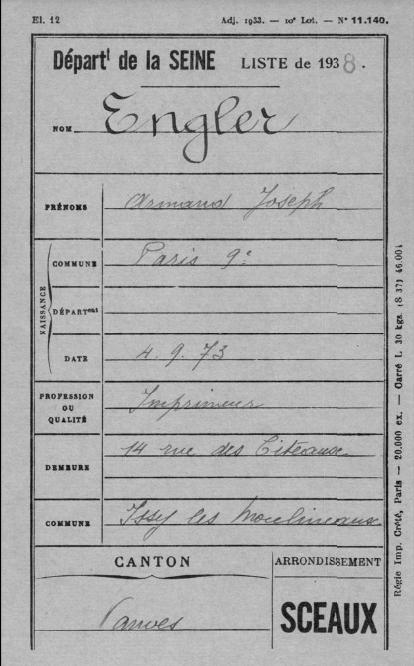 El. 12
Adj. 1933. — 10e Lot. — No 11.140.
Départt de la SEINE LISTE de 1938.
NOM Engler
PRÉNOMS Armand Joseph
NAISSANCE
COMMUNE Paris 9e
DÉPARTement
DATE 4.9.73
PROFESSION
OU
QUALITÉ
Imprimeur
DEMEURE 14 rue des Citeaux
COMMUNE Issy les Moulineaux
CANTON
Vanves
ARRONDISSEMENT
SCEAUX
Régie Imp. Crété, Paris — 20,000 ex. — Carré L. 30 kgs. (S 37) 46.004